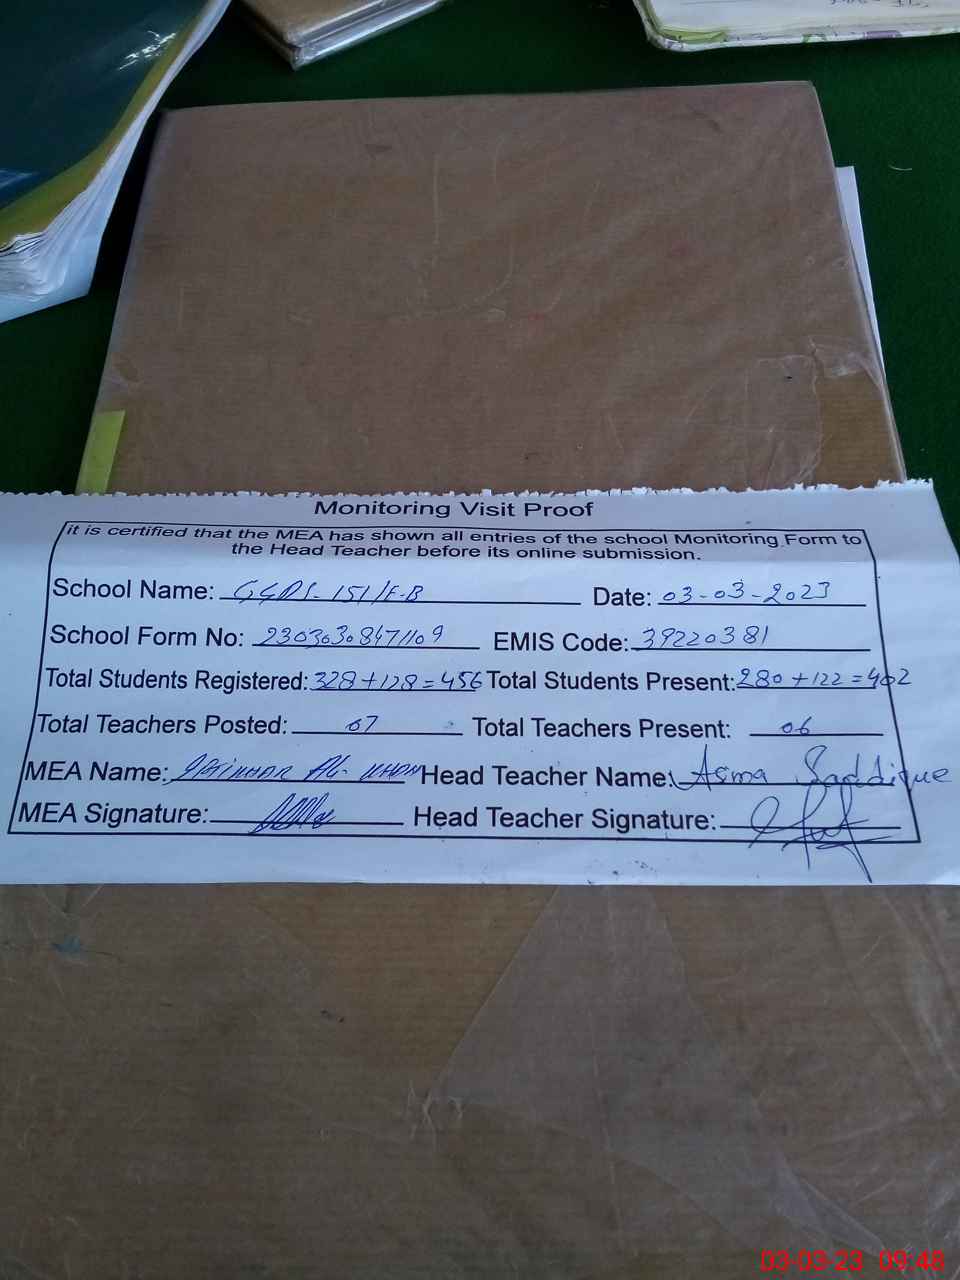 Monitoring Visit Proof
it is certified that the MEA has shown all entries of the school Monitoring Form to
the Head Teacher before its online submission.
School Name: GGPS-151/E-B Date: 03-03-2023
School Form No: EMIS Code: 39220381
Total Students Registered: 328+128=456 Total Students Present: 280+122=402
Total Teachers Posted: 07 Total Teachers Present: 06
MEA Name: Head Teacher Name: Asma Saddique
MEA Signature: Head Teacher Signature:
03-03-23 09:48